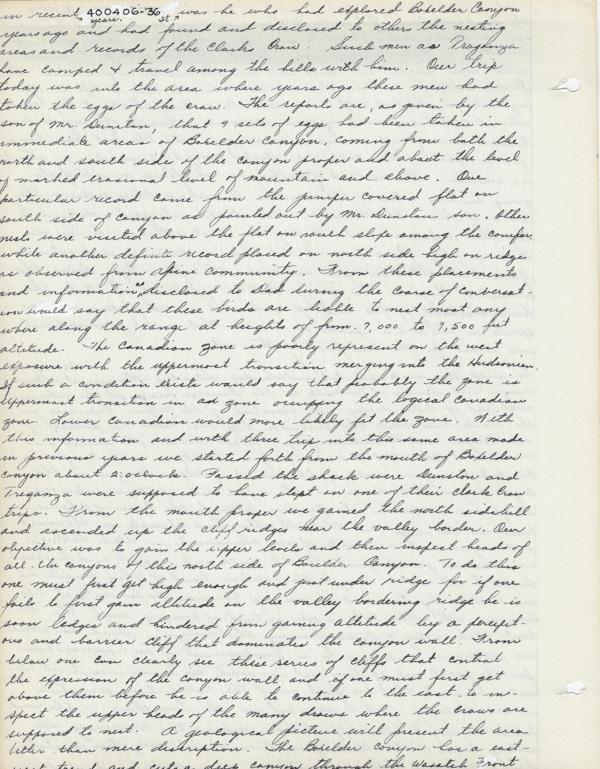 in recent years. 400406-36 st was he who had explored Boxelder Canyon
years ago and had found and disclosed to others the nesting
areas and records of the Clarks Crow. Such men as Treganza
have camped & travel among the hills with him. Our trip
today was into the area where years ago these men had
taken the eggs of the crow. The reports are, as given by the
son of Mr. Dunston, that 9 sets of eggs had been taken in
immediate areas of Boxelder Canyon, coming from both the
north and south side of the canyon proper and about the level
of marked erasional level of mountain and above. One
particular record came from the juniper covered flat on
south side of canyon as pointed out by Mr. Dunston son. Other
nests were visited above the flat on south slope among the conifer,
while another definite record placed on north side high on ridge
as observed from Alpine community. From these placements
and information, as disclosed to Dad during the coarse of conversat-
ion would say that these birds are liable to nest most any
where along the range at heights of from. 7,000 to 9,500 feet
altitude. The Canadian zone is poorly represent on the west
exposure with the uppermost transition merging into the Hudsonian.
If such a condition exists would say that probably the zone is
uppermost transition in ad zone occupying the logical Canadian
zone. Lower Canadian would more likely fit the zone. With
this information and with three trip into this same area made
in previous years we started forth from the mouth of Boxelder
canyon about 2:oclock. Passed the shack were Dunston and
Treganza were supposed to have slept on one of their Clark Crow
trips. From the mouth proper we gained the north sidehill
and ascended up the cliff ridges near the valley border. Our
objective was to gain the upper levels and then inspect heads of
all the canyons of this north side of Boxelder Canyon. To do this
one must first get high enough and just under ridge for if one
fails to first gain altitude on the valley bordering ridge he is
soon ledges and hindered from gaining altitude by a precipit-
ous and barrier cliff that dominates the canyon wall. From
below one can clearly see these series of cliffs that control
the expression of the canyon wall and of one must first get
above them before he is able to continue to the east, to in-
spect the upper heads of the many draws where the crows are
supposed to nest. A geological picture will present the area
better than mere discription. The Boxelder canyon has a east-
west trend and cuts a deep canyon through the Wasatch Front